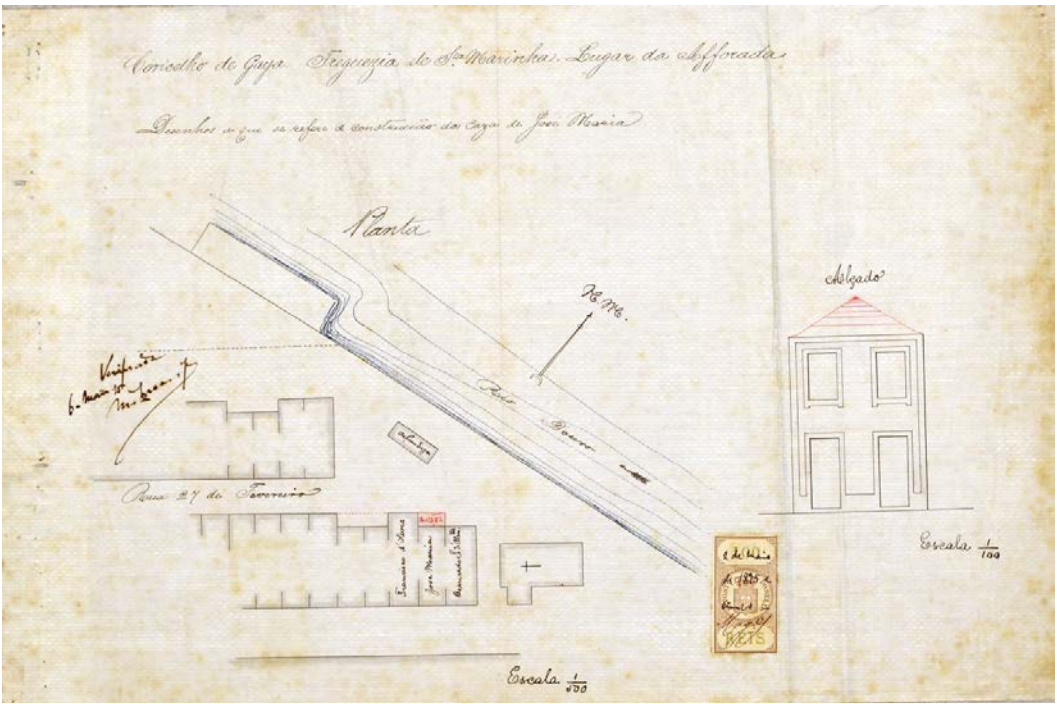 Concelho de Gaya Freguezia de Sta Marinha. Lugar da Afforada
Desenhos a que se refere a construcção da Caza de Jose Maria
Planta
N. M.
Alçado
Verificada
Rio Douro
Rua 27 de Fevereiro
Francisco d'
Jose Maria
Bernardo
Escala 1/100
2 de Maio
de 1895
REIS
Escala 1/500